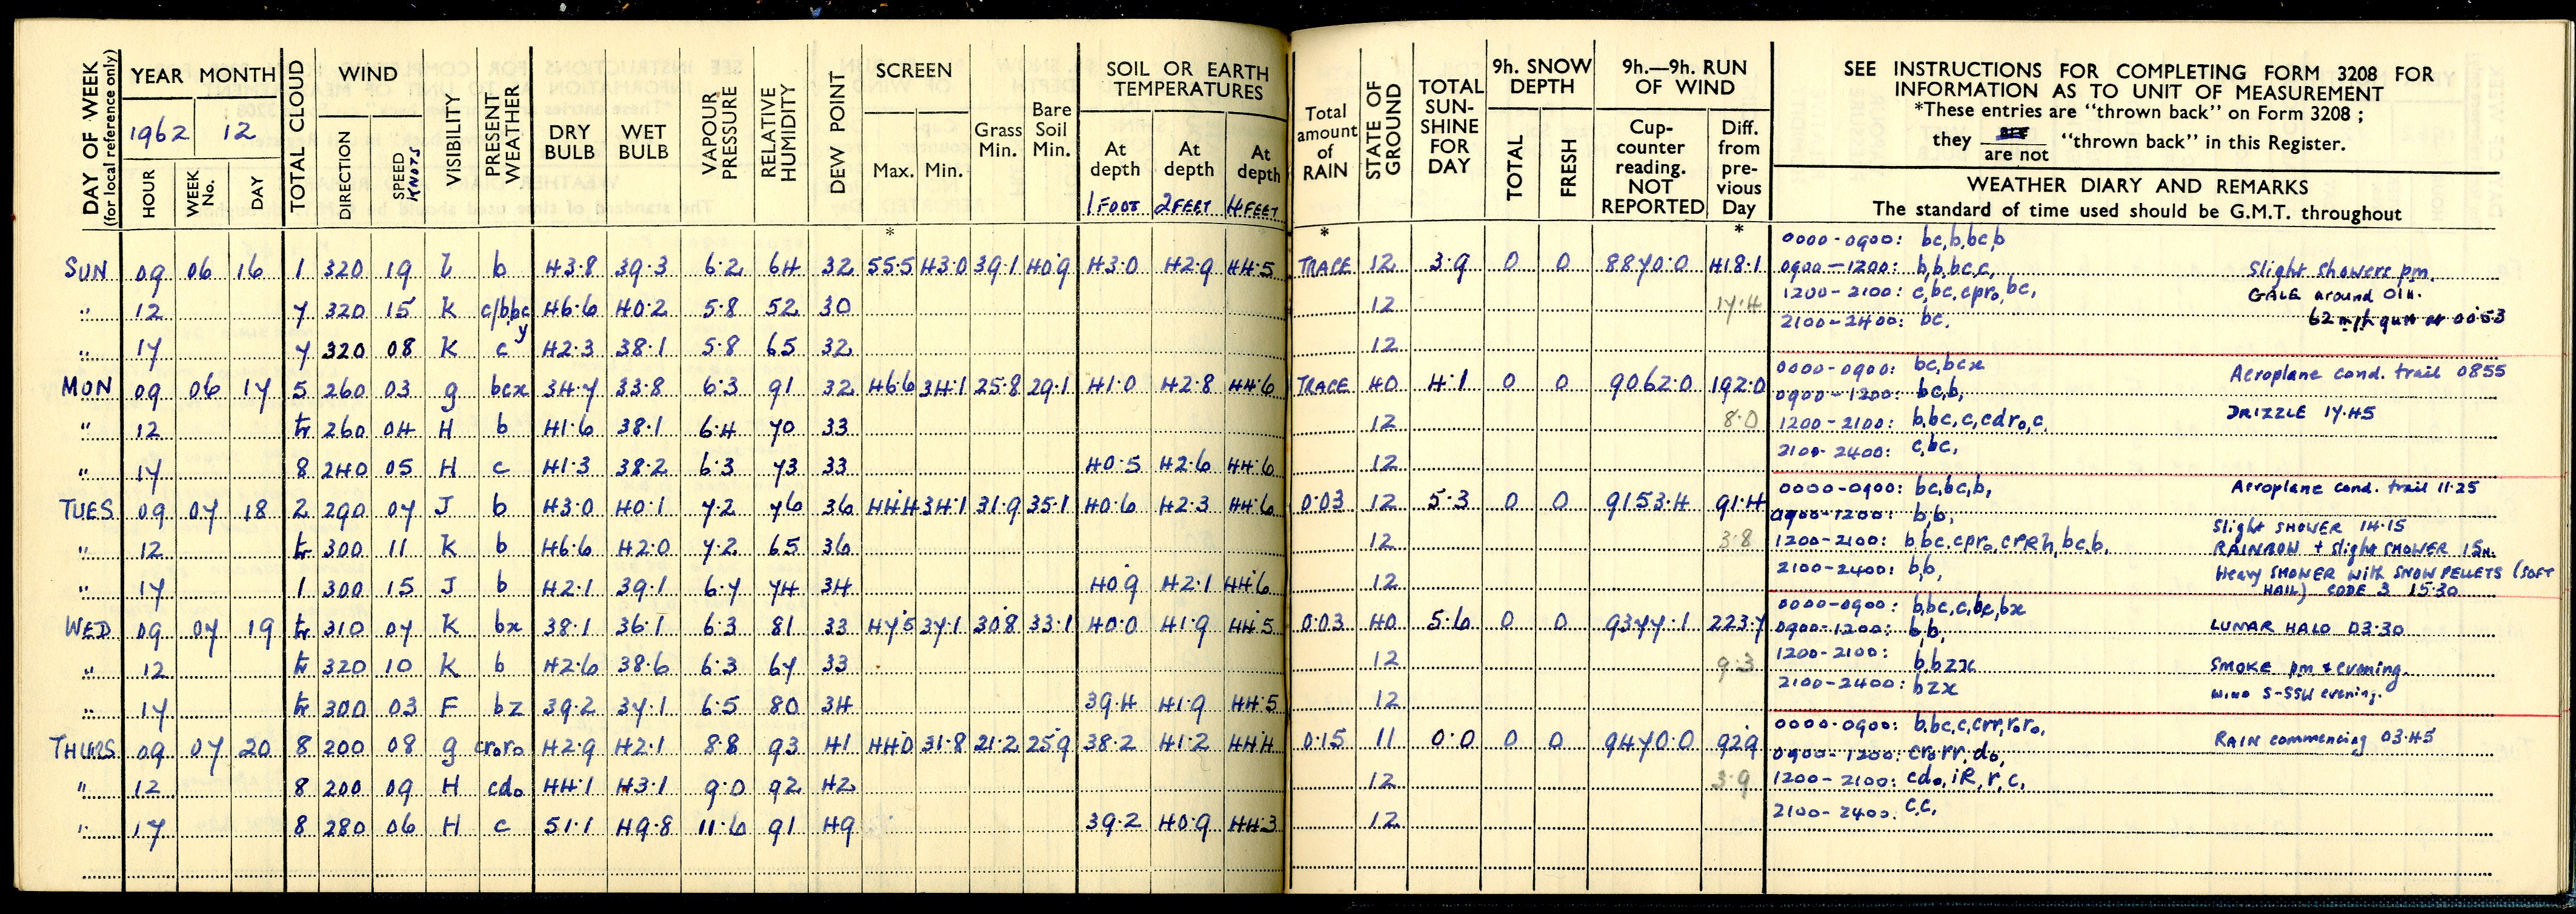 DAY OF WEEK (for local reference only) YEAR MONTH TOTAL CLOUD WIND VISIBILITY PRESENT WEATHER DRY BULB WET BULB VAPOUR PRESSURE RELATIVE HUMIDITY DEW POINT SCREEN Grass Min. Bare Soil Min. SOIL OR EARTH TEMPERATURES
1962 12
HOUR WEEK No. DAY DIRECTION SPEED KNOTS Max. Min. At depth At depth At depth
1 FOOT 2 FEET 4 FEET
Total amount of RAIN STATE OF GROUND TOTAL SUN-SHINE FOR DAY 9h. SNOW DEPTH TOTAL FRESH 9h.—9h. RUN OF WIND Cup-counter reading. NOT REPORTED Diff. from previous Day
SEE INSTRUCTIONS FOR COMPLETING FORM 3208 FOR
INFORMATION AS TO UNIT OF MEASUREMENT
*These entries are "thrown back" on Form 3208 ;
they are are not "thrown back" in this Register.
WEATHER DIARY AND REMARKS
The standard of time used should be G.M.T. throughout
* * *
SUN 09 06 16 1 320 19 b 43.8 39.3 6.2 64 32 55.5 43.0 39.1 40.9 43.0 42.9 44.5 TRACE 12 3.9 0 0 8870.0 418.1
" 12 7 320 15 K c/bbc y 46.6 40.2 5.8 52 30 12 17.4
" 17 7 320 08 K c 42.3 38.1 5.8 65 32 12
0000-0900: bc,b,bc,b
0900-1200: b,b,bc,c, Slight showers pm.
1200-2100: c,bc,cpro,bc, GALE around 01h.
2100-2400: bc. 62 mph gust at 00.53
MON 09 06 17 5 260 03 g bcx 34.7 33.8 6.3 91 32 46.6 34.1 25.8 29.1 41.0 42.8 44.6 TRACE 40 4.1 0 0 9062.0 192.0
" 12 tr 260 04 H b 41.6 38.1 6.4 70 33 12 8.0
" 17 8 240 05 H c 41.3 38.2 6.3 73 33 40.5 42.6 44.6 12
0000-0900: bc,bcx Aeroplane cond. trail 0855
0900-1200: bc,b,
1200-2100: b,bc,c,cdro,c, DRIZZLE 17.45
2100-2400: c,bc,
TUES 09 07 18 2 290 07 J b 43.0 40.1 7.2 76 36 44.4 34.1 31.9 35.1 40.6 42.3 44.6 0.03 12 5.3 0 0 9153.4 91.4
" 12 tr 300 11 K b 46.6 42.0 7.2 65 36 12 3.8
" 17 1 300 15 J b 42.1 39.1 6.7 74 34 40.9 42.1 44.6 12
0000-0900: bc,bc,b, Aeroplane cond. trail 11.25
0900-1200: b,b,
Slight SHOWER 14.15
1200-2100: b,bc,cpro,cpRh,bc,b. RAINBOW + slight SHOWER 15h.
2100-2400: b,b, Heavy SHOWER with SNOW PELLETS (SOFT
HAIL) CODE 3 15.30
WED 09 07 19 tr 310 07 K bx 38.1 36.1 6.3 81 33 47.5 37.1 30.8 33.1 40.0 41.9 44.5 0.03 40 5.6 0 0 9377.1 223.7
" 12 tr 320 10 K b 42.6 38.6 6.3 67 33 12 9.3
" 17 tr 300 03 F bz 39.2 37.1 6.5 80 34 39.4 41.9 44.5 12
0000-0900: b,bc,c,bc,bx
0900-1200: b,b, LUNAR HALO 03.30
1200-2100: b,bzx Smoke pm & evening.
2100-2400: bzx WIND S-SSW evening.
THURS 09 07 20 8 200 08 g croro 42.9 42.1 8.8 93 41 44.0 31.8 21.2 25.9 38.2 41.2 44.4 0.15 11 0.0 0 0 9470.0 92.9
" 12 8 200 09 H cdo 44.1 43.1 9.0 92 42 12 3.9
" 17 8 280 06 H c 51.1 49.8 11.6 91 49 39.2 40.9 44.3 12
0000-0900: b,bc,c,crr,roro, RAIN commencing 03.45
0900-1200: crorr,do,
1200-2100: cdo,iR,r,c,
2100-2400: c,c,